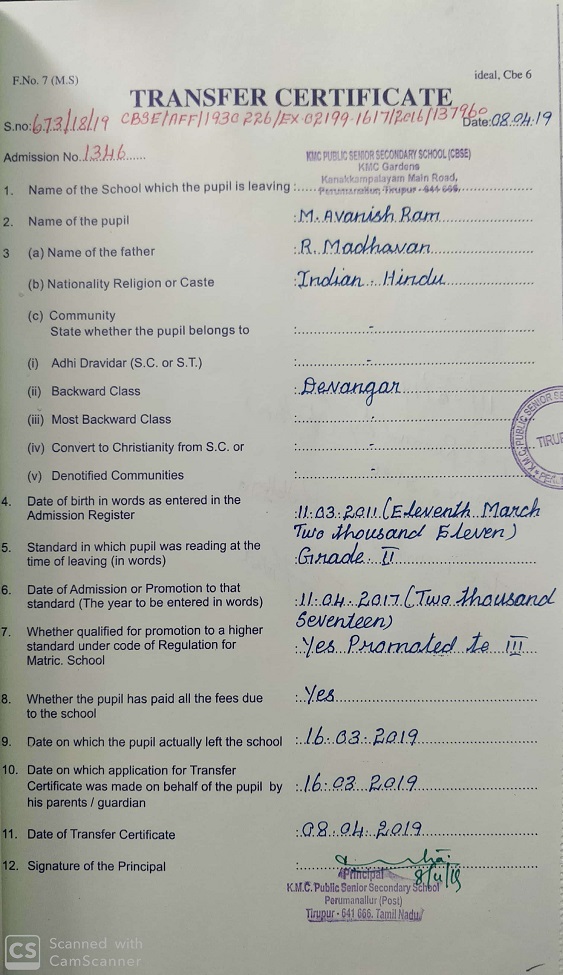 F.No. 7 (M.S)
ideal, Cbe 6
TRANSFER CERTIFICATE
S.no: 673/18/19 CBSE/AFF/1930226/EX-02199-1617/2016/137960 Date: 08.04.19
Admission No. 1346
KMC PUBLIC SENIOR SECONDARY SCHOOL (CBSE)
KMC Gardens
Kanakkampalayam Main Road,
Perumanallur, Tirupur - 641 666.
1. Name of the School which the pupil is leaving :
2. Name of the pupil : M. Avanish Ram
3 (a) Name of the father : R. Madhavan
(b) Nationality Religion or Caste : Indian - Hindu
(c) Community
State whether the pupil belongs to : -
(i) Adhi Dravidar (S.C. or S.T.) : -
(ii) Backward Class : Devangar
(iii) Most Backward Class : -
(iv) Convert to Christianity from S.C. or : -
(v) Denotified Communities : -
4. Date of birth in words as entered in the : 11.03.2011 (Eleventh March
Admission Register Two thousand Eleven)
5. Standard in which pupil was reading at the : Grade II
time of leaving (in words)
6. Date of Admission or Promotion to that : 11.04.2017 (Two thousand
standard (The year to be entered in words) Seventeen)
7. Whether qualified for promotion to a higher : Yes Promoted to III
standard under code of Regulation for
Matric. School
8. Whether the pupil has paid all the fees due : Yes
to the school
9. Date on which the pupil actually left the school : 16.03.2019
10. Date on which application for Transfer : 16.03.2019
Certificate was made on behalf of the pupil by
his parents / guardian
11. Date of Transfer Certificate : 08.04.2019
12. Signature of the Principal :
8/4/19
Principal
K.M.C. Public Senior Secondary School
Perumanallur (Post)
Tirupur - 641 666. Tamil Nadu
K.M.C. PUBLIC SENIOR SE
TIRU
CS Scanned with
CamScanner